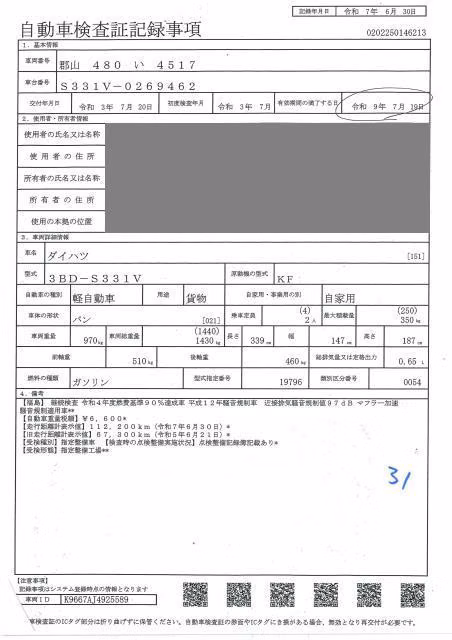 記録年月日 令和 7年 6月 30日
自動車検査証記録事項
0202250146213
1. 基本情報
車両番号 郡山 480 い 4517
車台番号 S331V-0269462
交付年月日 令和 3年 7月 20日 初度検査年月 令和 3年 7月 有効期間の満了する日 令和 9年 7月 19日
2. 使用者・所有者情報
使用者の氏名又は名称
使用者の住所
所有者の氏名又は名称
所有者の住所
使用の本拠の位置
3. 車両詳細情報
車名 ダイハツ [151]
型式 3BD-S331V 原動機の型式 KF
自動車の種別 軽自動車 用途 貨物 自家用・事業用の別 自家用
車体の形状 バン [021] 乗車定員 (4) 2人 最大積載量 (250) 350kg
車両重量 970kg 車両総重量 (1440) 1430kg 長さ 339cm 幅 147cm 高さ 187cm
前軸重 510kg 後軸重 460kg 総排気量又は定格出力 0.65L
燃料の種類 ガソリン 型式指定番号 19796 類別区分番号 0054
4. 備考
【福島】 継続検査 令和4年度燃費基準90%達成車 平成12年騒音規制車 近接排気騒音規制値97dB マフラー加速
騒音規制適用車**
【自動車重量税額】¥6,600*
【走行距離計表示値】112,200km(令和7年6月30日)*
【旧走行距離計表示値】67,300km(令和5年6月21日)*
【受検種別】指定整備車 【検査時の点検整備実施状況】点検整備記録簿記載あり*
【受検形態】指定整備工場**
31
【注意事項】
記録事項はシステム登録時点の情報となります
車両ID K9667AJ4925589
車検査証のICタグ部分は折り曲げずに保管ください。自動車検査証の券面やICタグにき損がある場合、無効となり再交付が必要です。